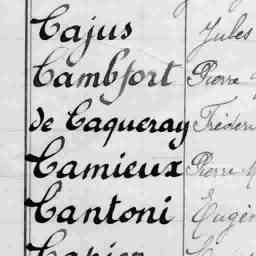 Cajus Jules
Cambfort Pierre
de Caqueray Frédéri
Camieux Pierre M
Cantoni Eugèn